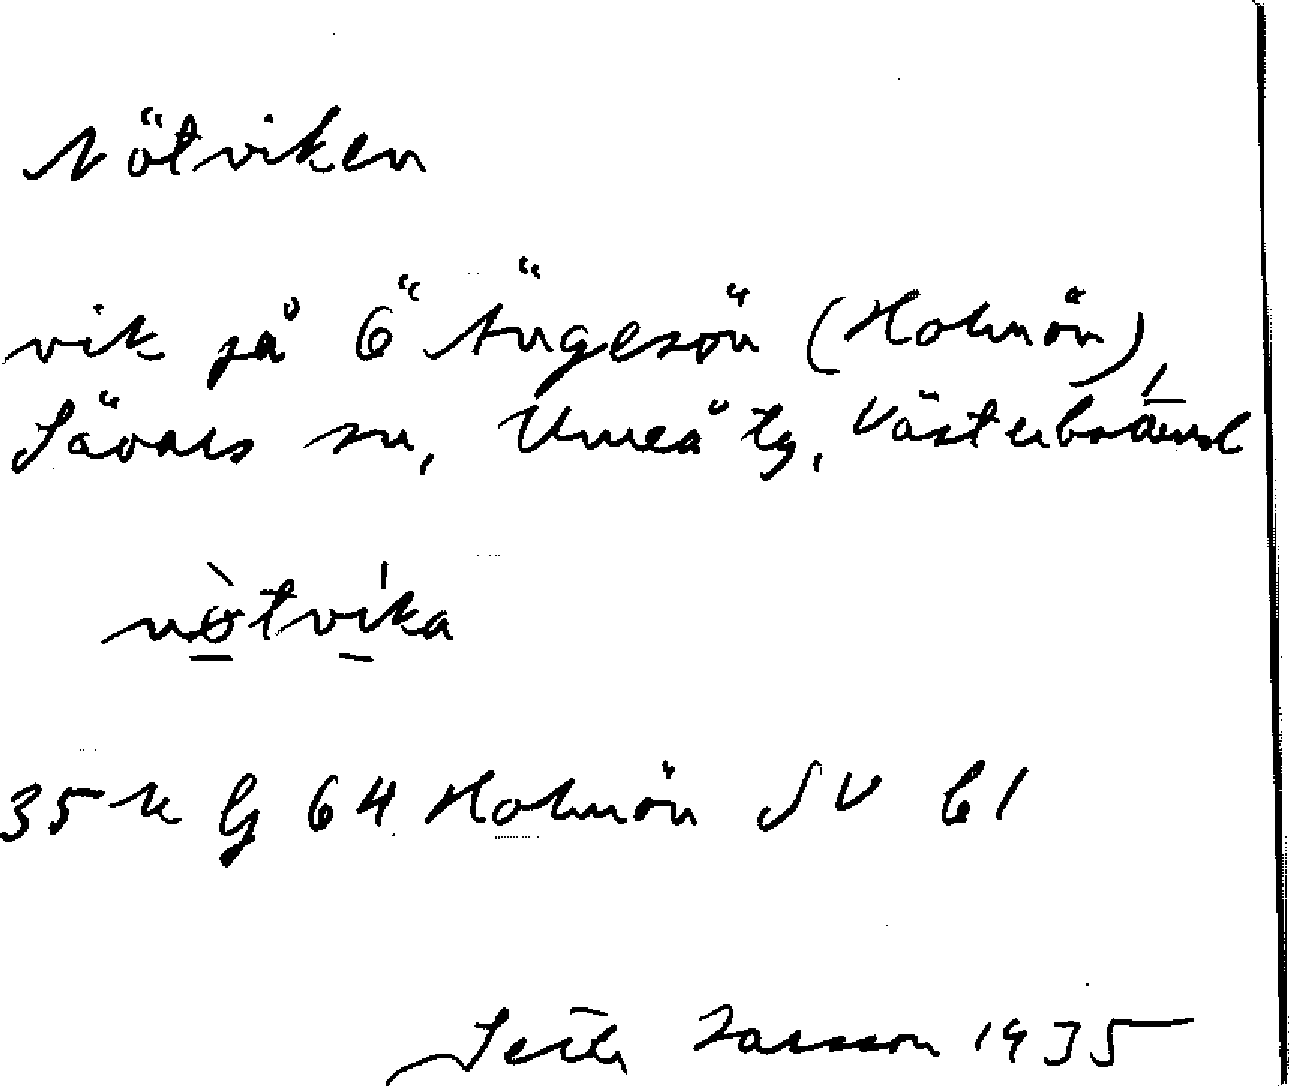 Nötviken
vik på ö Ängesön (Holmön),
Sävars sn, Umeå tg, Västerbotten
nøtvika
35 u G 64 Holmön SV b1
Larsson 1935